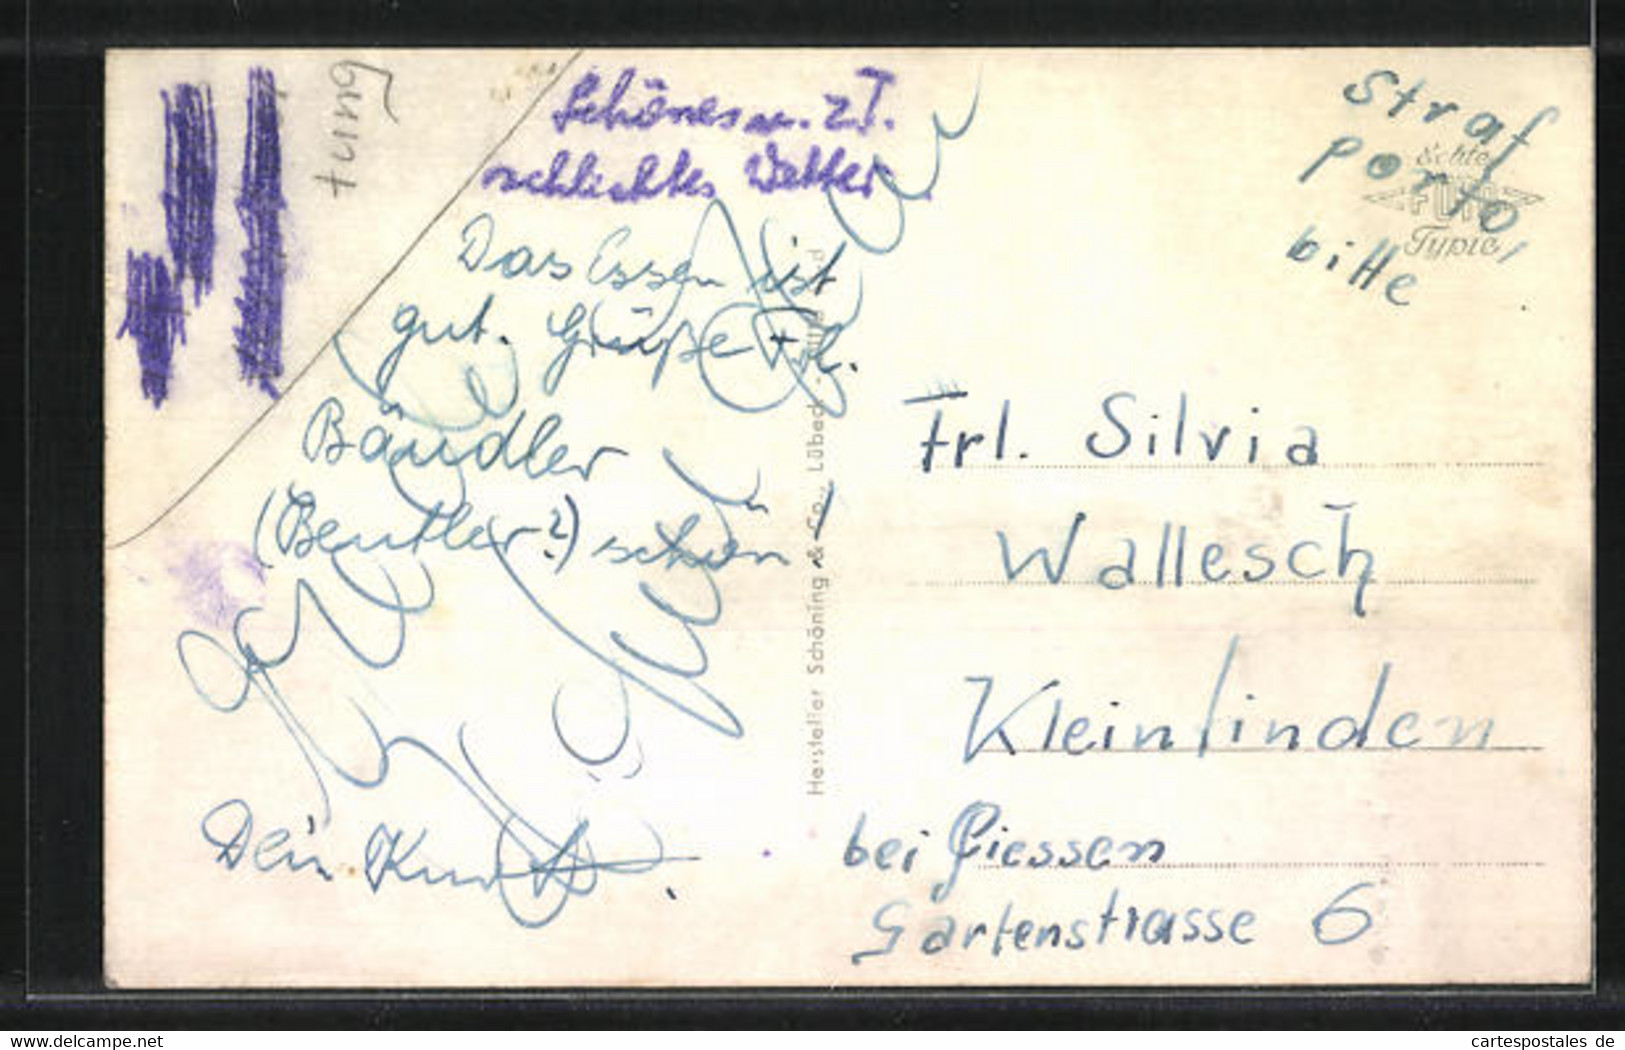 tung
Schönes u. z.T.
schlichtes Wetter
Das Essen ist
gut. Grüße Frl.
Bändler
(Bentler?) schön
Dein Kurt.
Straf
Porto
bitte
Echte
Typie
Frl. Silvia
Wallesch
Kleinlinden
bei Giessen
Gartenstrasse 6
Hersteller Schöning & Co., Lübeck
delcampe.net
cartespostales de